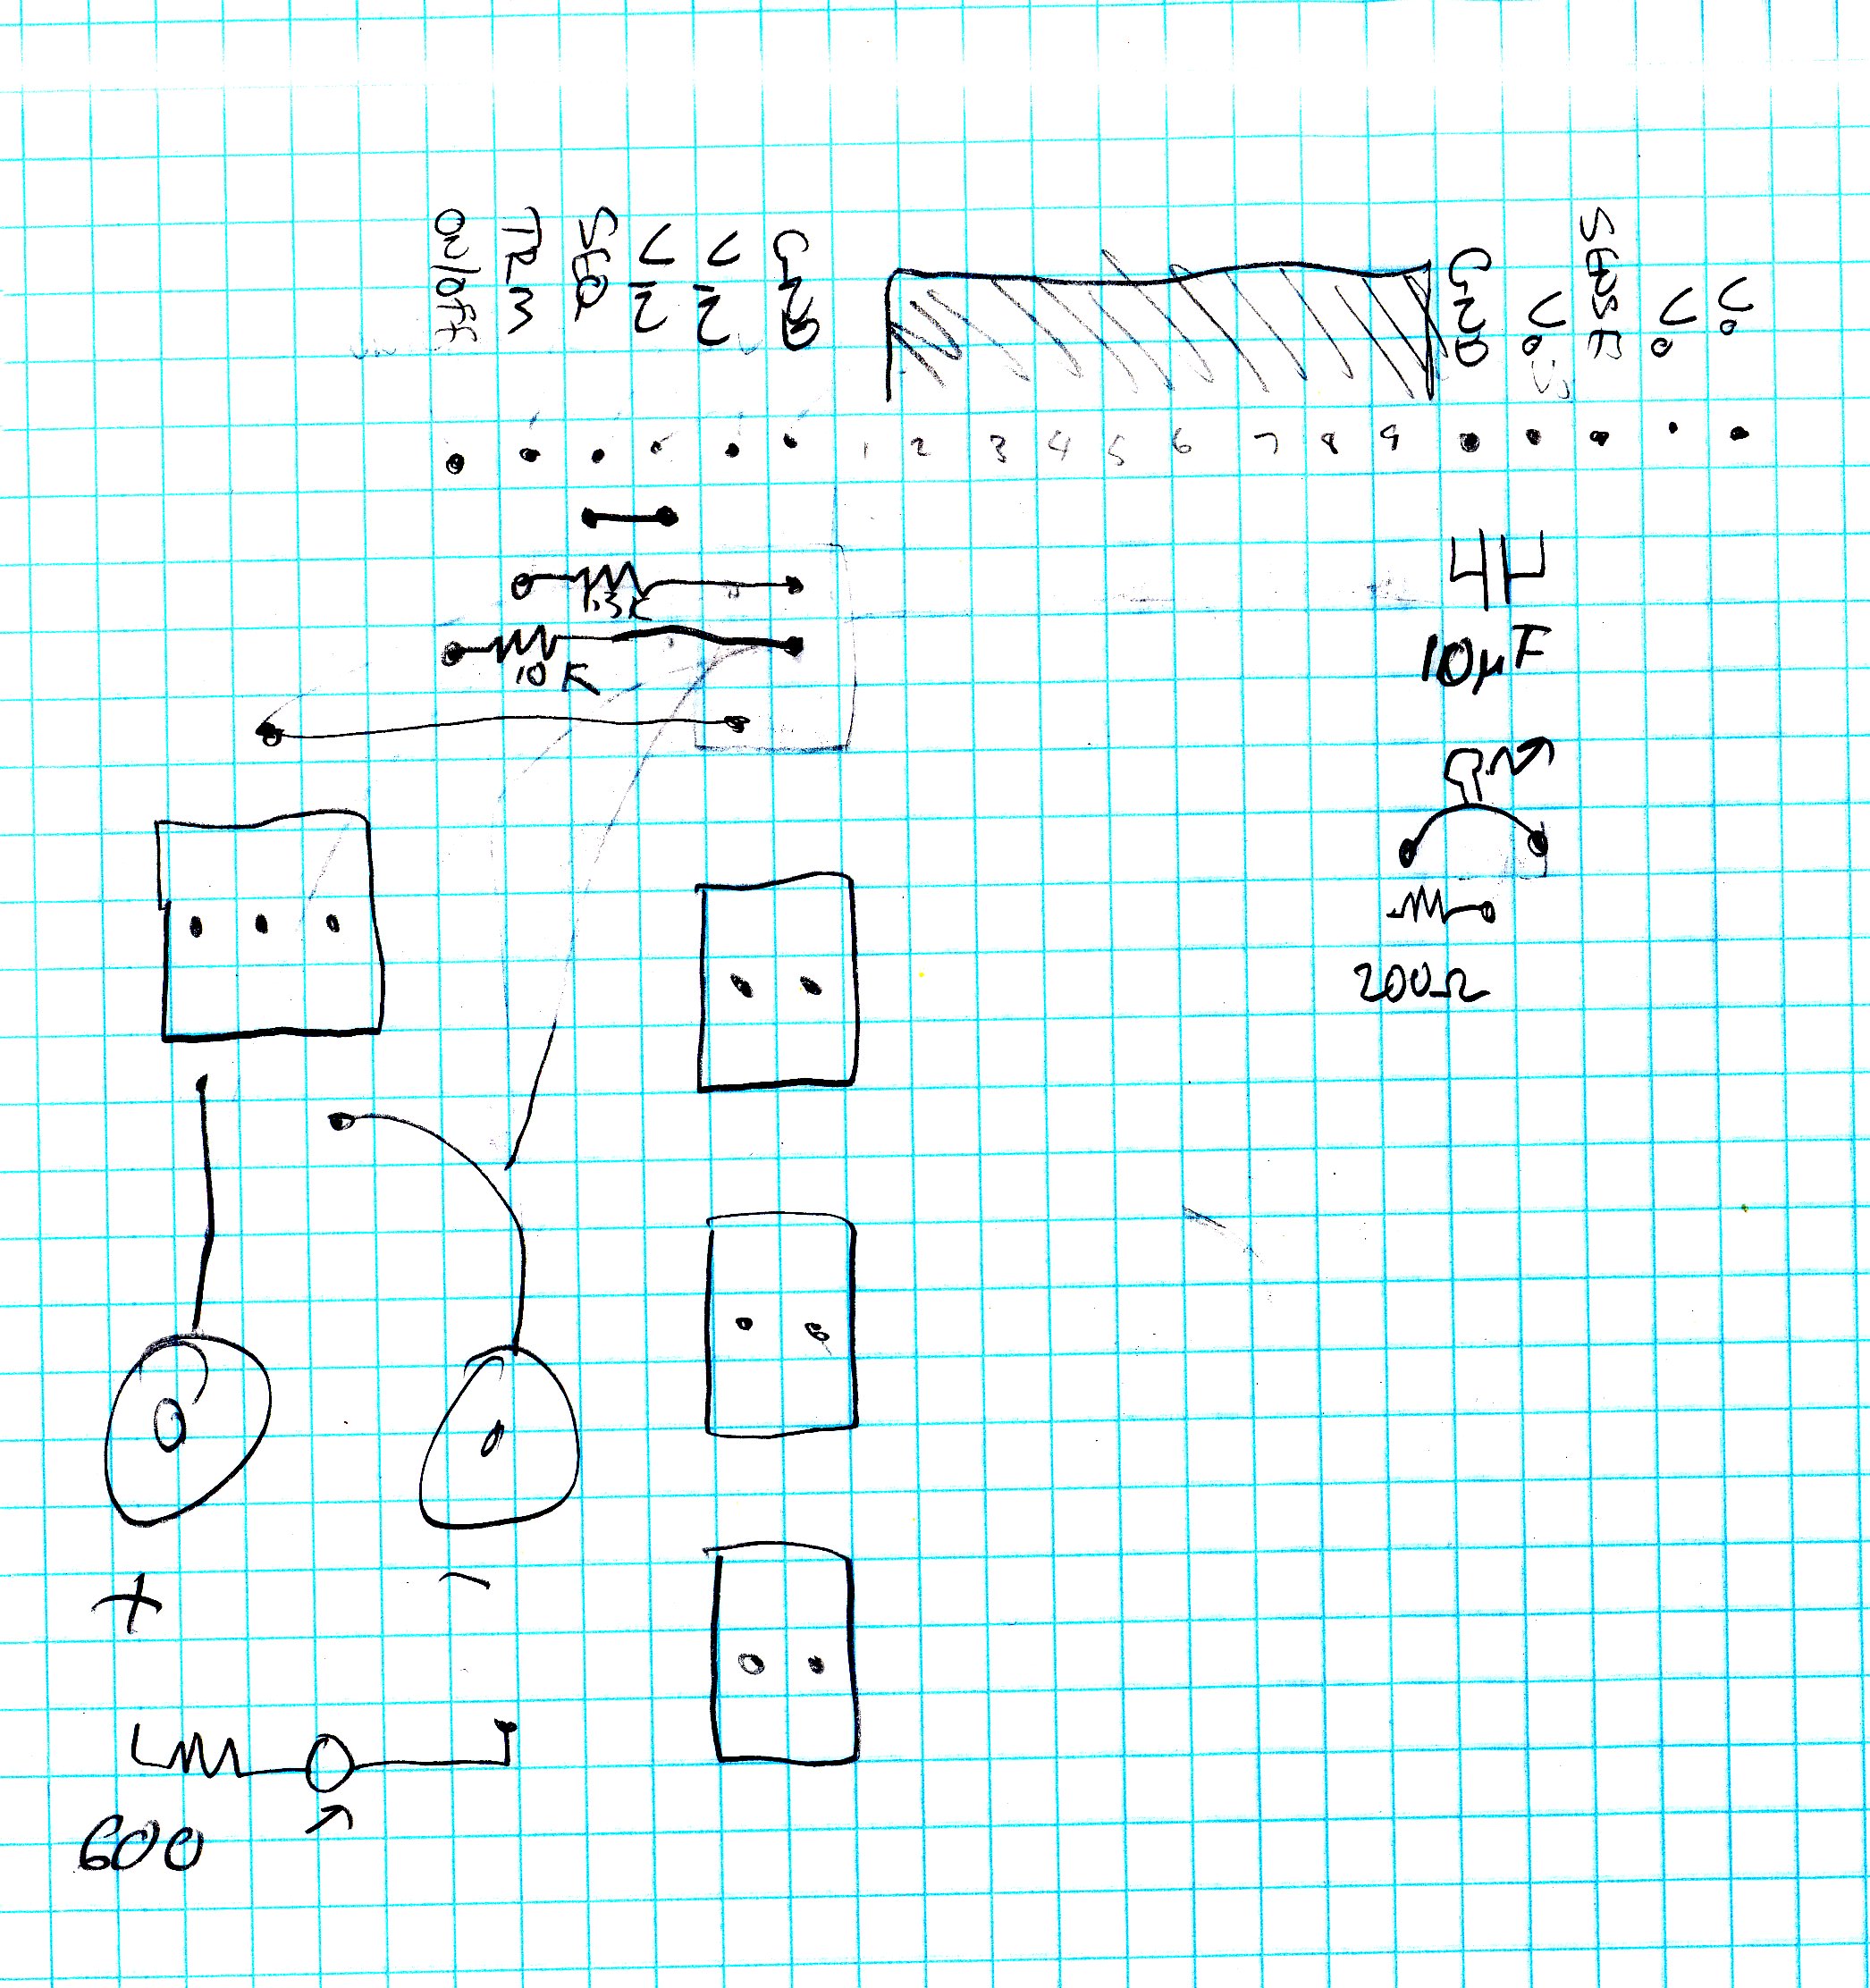 ON/OFF
TRM
SEQ
VIN
VIN
GND
GND
Vo
SENSE
Vo
Vo
1 2 3 4 5 6 7 8 9
1.3K
10K
10µF
200Ω
+ -
600